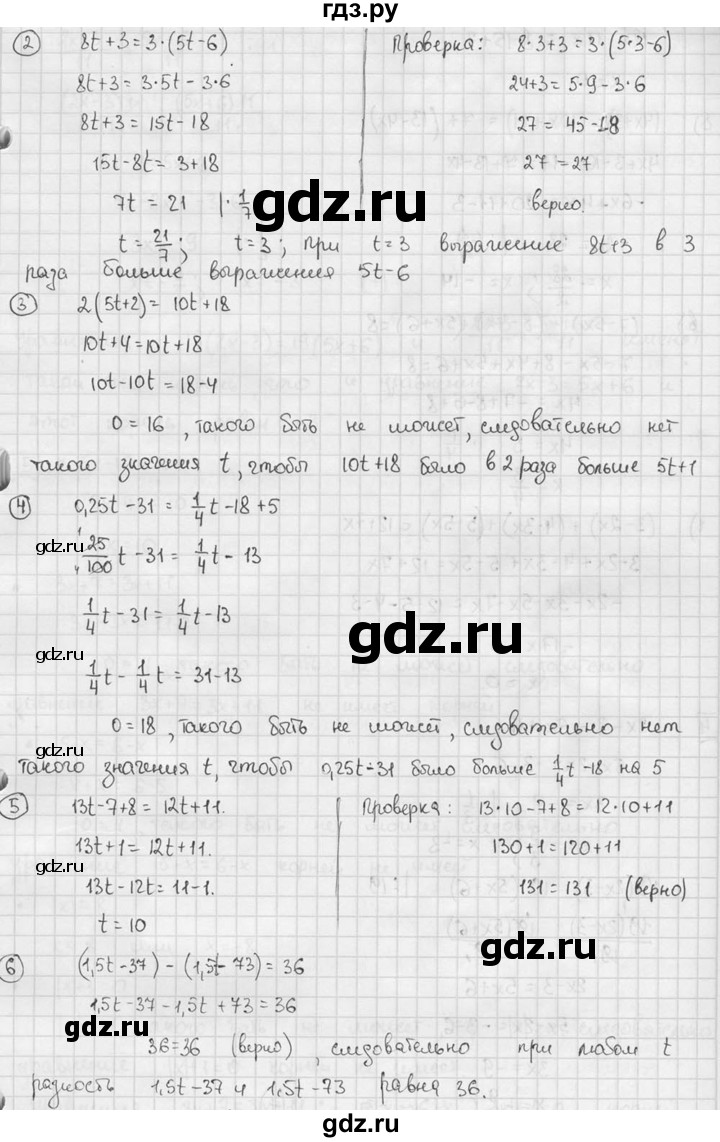 гдз.ру
② 8t+3=3·(5t-6)
8t+3=3·5t-3·6
8t+3=15t-18
15t-8t=3+18
7t=21 |·1/7
t=21/7; t=3; при t=3 выражение 8t+3 в 3
раза больше выражения 5t-6
Проверка: 8·3+3=3·(5·3-6)
24+3=5·9-3·6
27=45-18
27=27
верно.
gdz.ru
③ 2(5t+2)=10t+18
10t+4=10t+18
10t-10t=18-4
0=16, такого быть не может, следовательно нет
такого значения t, чтобы 10t+18 было в 2 раза больше 5t+1
④ 0,25t-31=1/4t-18+5
gdz.ru
25/100t-31=1/4t-13
1/4t-31=1/4t-13
gdz.ru
gdz.ru
1/4t-1/4t=31-13
0=18, такого быть не может, следовательно нет
такого значения t, чтобы 0,25t-31 было больше 1/4t-18 на 5
gdz.ru
⑤ 13t-7+8=12t+11.
13t+1=12t+11.
gdz.ru
13t-12t=11-1.
t=10
Проверка: 13·10-7+8=12·10+11
130+1=120+11
131=131 (верно)
gdz.ru
⑥ (1,5t-37)-(1,5t-73)=36
1,5t-37-1,5t+73=36
gdz.ru
36=36 (верно), следовательно при любом t
разность 1,5t-37 и 1,5t-73 равна 36.
gdz.ru
gdz.ru